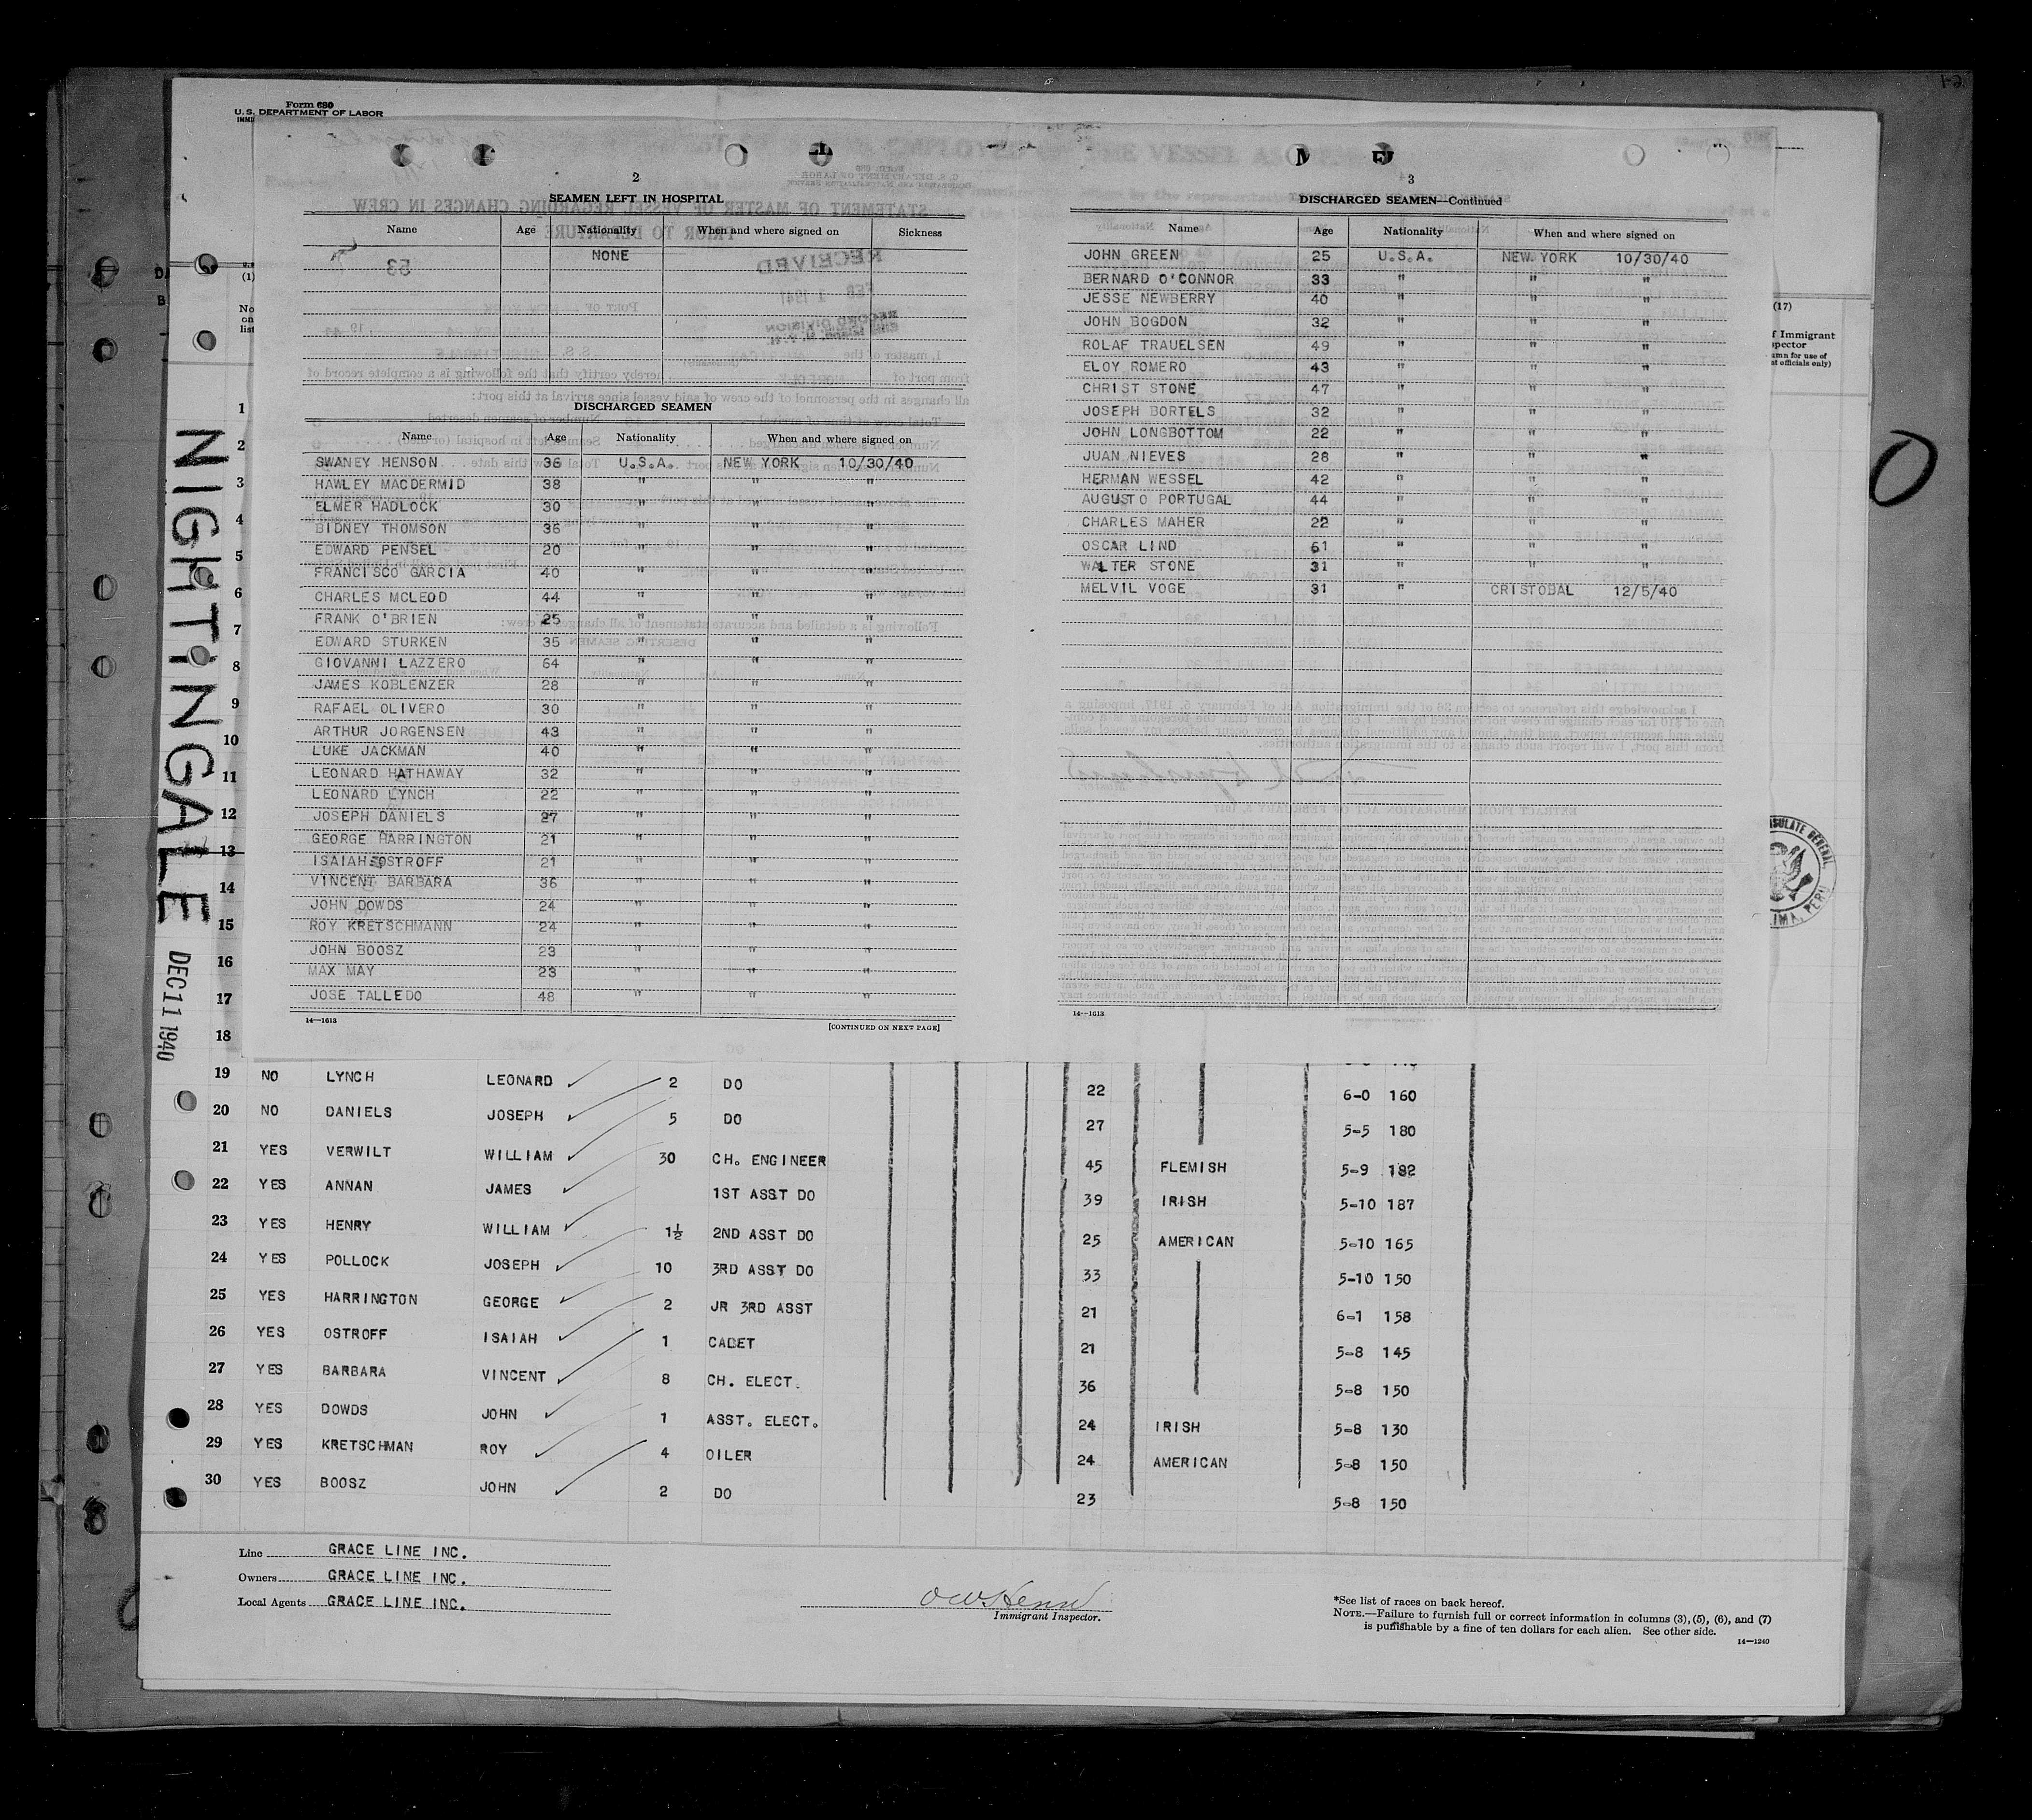 Form 680
U. S. DEPARTMENT OF LABOR
2
SEAMEN LEFT IN HOSPITAL
Name Age Nationality When and where signed on Sickness
NONE
DISCHARGED SEAMEN
Name Age Nationality When and where signed on
SWANEY HENSON 36 U.S.A. NEW YORK 10/30/40
HAWLEY MACDERMID 38 " " "
ELMER HADLOCK 30 " " "
BIDNEY THOMSON 36 " " "
EDWARD PENSEL 20 " " "
FRANCISCO GARCIA 40 " " "
CHARLES MCLEOD 44 " " "
FRANK O'BRIEN 25 " " "
EDWARD STURKEN 35 " " "
GIOVANNI LAZZERO 64 " " "
JAMES KOBLENZER 28 " " "
RAFAEL OLIVERO 30 " " "
ARTHUR JORGENSEN 43 " " "
LUKE JACKMAN 40 " " "
LEONARD HATHAWAY 32 " " "
LEONARD LYNCH 22 " " "
JOSEPH DANIELS 27 " " "
GEORGE HARRINGTON 21 " " "
ISAIAH OSTROFF 21 " " "
VINCENT BARBARA 36 " " "
JOHN DOWDS 24 " " "
ROY KRETSCHMANN 24 " " "
JOHN BOOSZ 23 " " "
MAX MAY 23 " " "
JOSE TALLEDO 48 " " "
14—1613 [CONTINUED ON NEXT PAGE]
3
DISCHARGED SEAMEN—Continued
Name Age Nationality When and where signed on
JOHN GREEN 25 U.S.A. NEW YORK 10/30/40
BERNARD O'CONNOR 33 " " "
JESSE NEWBERRY 40 " " "
JOHN BOGDON 32 " " "
ROLAF TRAUELSEN 49 " " "
ELOY ROMERO 43 " " "
CHRIST STONE 47 " " "
JOSEPH BORTELS 32 " " "
JOHN LONGBOTTOM 22 " " "
JUAN NIEVES 28 " " "
HERMAN WESSEL 42 " " "
AUGUSTO PORTUGAL 44 " " "
CHARLES MAHER 22 " " "
OSCAR LIND 61 " " "
WALTER STONE 31 " " "
MELVIL VOGE 31 " CRISTOBAL 12/5/40
14—1613
(1)
No
on
list
(17)
f Immigrant
pector
umn for use of
t officials only)
NIGHTINGALE
DEC 11 1940
0
1
2
3
4
5
6
7
8
9
10
11
12
13
14
15
16
17
18
19 NO LYNCH LEONARD 2 DO 22 6-0 160
20 NO DANIELS JOSEPH 5 DO 27 5-5 180
21 YES VERWILT WILLIAM 30 CH. ENGINEER 45 FLEMISH 5-9 182
22 YES ANNAN JAMES 1ST ASST DO 39 IRISH 5-10 187
23 YES HENRY WILLIAM 1½ 2ND ASST DO 25 AMERICAN 5-10 165
24 YES POLLOCK JOSEPH 10 3RD ASST DO 33 5-10 150
25 YES HARRINGTON GEORGE 2 JR 3RD ASST 21 6-1 158
26 YES OSTROFF ISAIAH 1 CADET 21 5-8 145
27 YES BARBARA VINCENT 8 CH. ELECT. 36 5-8 150
28 YES DOWDS JOHN 1 ASST. ELECT. 24 IRISH 5-8 130
29 YES KRETSCHMAN ROY 4 OILER 24 AMERICAN 5-8 150
30 YES BOOSZ JOHN 2 DO 23 5-8 150
Line GRACE LINE INC.
Owners GRACE LINE INC.
Local Agents GRACE LINE INC.
Immigrant Inspector.
*See list of races on back hereof.
NOTE.—Failure to furnish full or correct information in columns (3), (5), (6), and (7)
is punishable by a fine of ten dollars for each alien. See other side.
14—1240